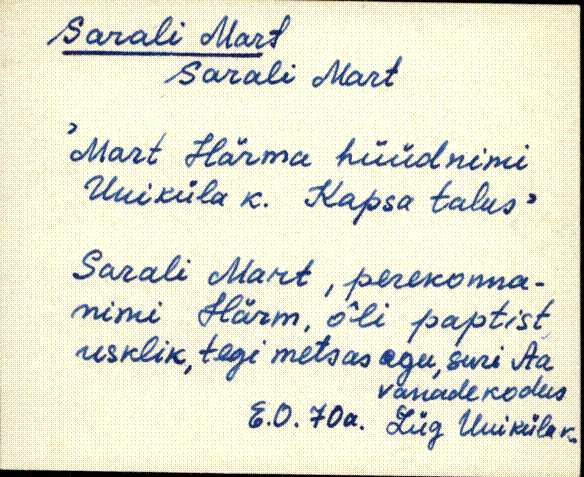 Sarali Mart
Sarali Mart
'Mart Härma hüüdnimi
Uniküla k. Kapsa talus'
Sarali Mart, perekonna-
nimi Härm, õli paptist
usklik, tegi metsas agu, suri Aa
vanadekodus
E.O. 70a. Lüg Uniküla k.